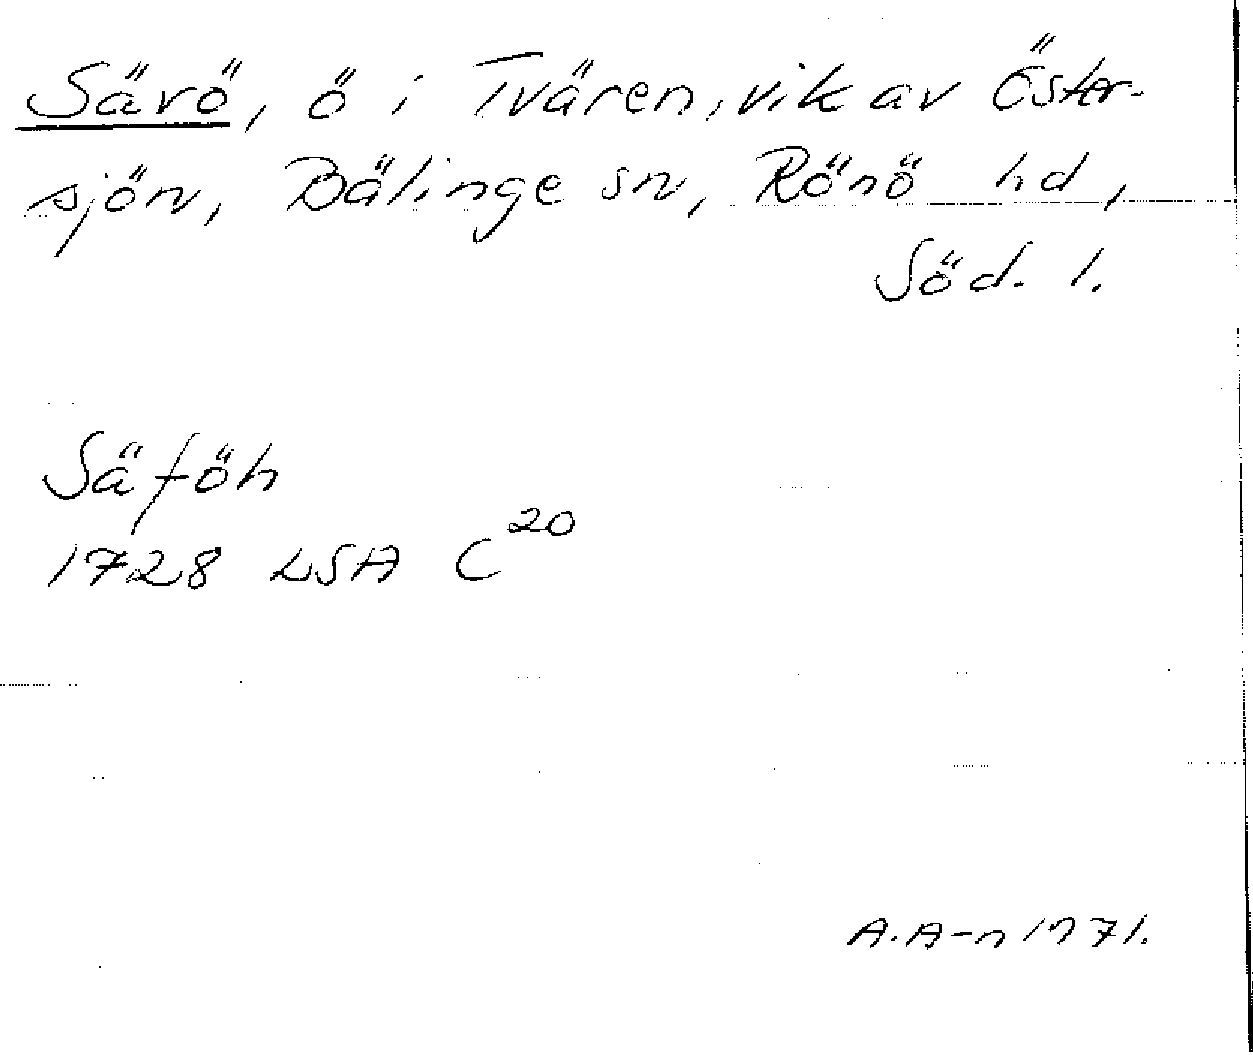 Sävö, ö i Tvären, vik av Öster-
sjön, Bälinge sn, Rönö hd,
Söd. l.
Säföh
1728 LSA C 20
A.A-n 1971.